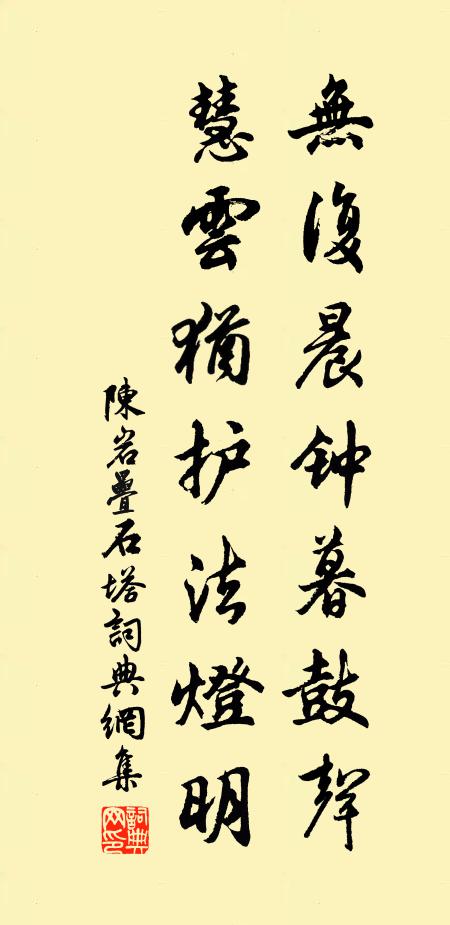 無復晨钟暮鼓聲
慧雲猶护法燈明
陳岩疊石塔詞典網集
詞典网印